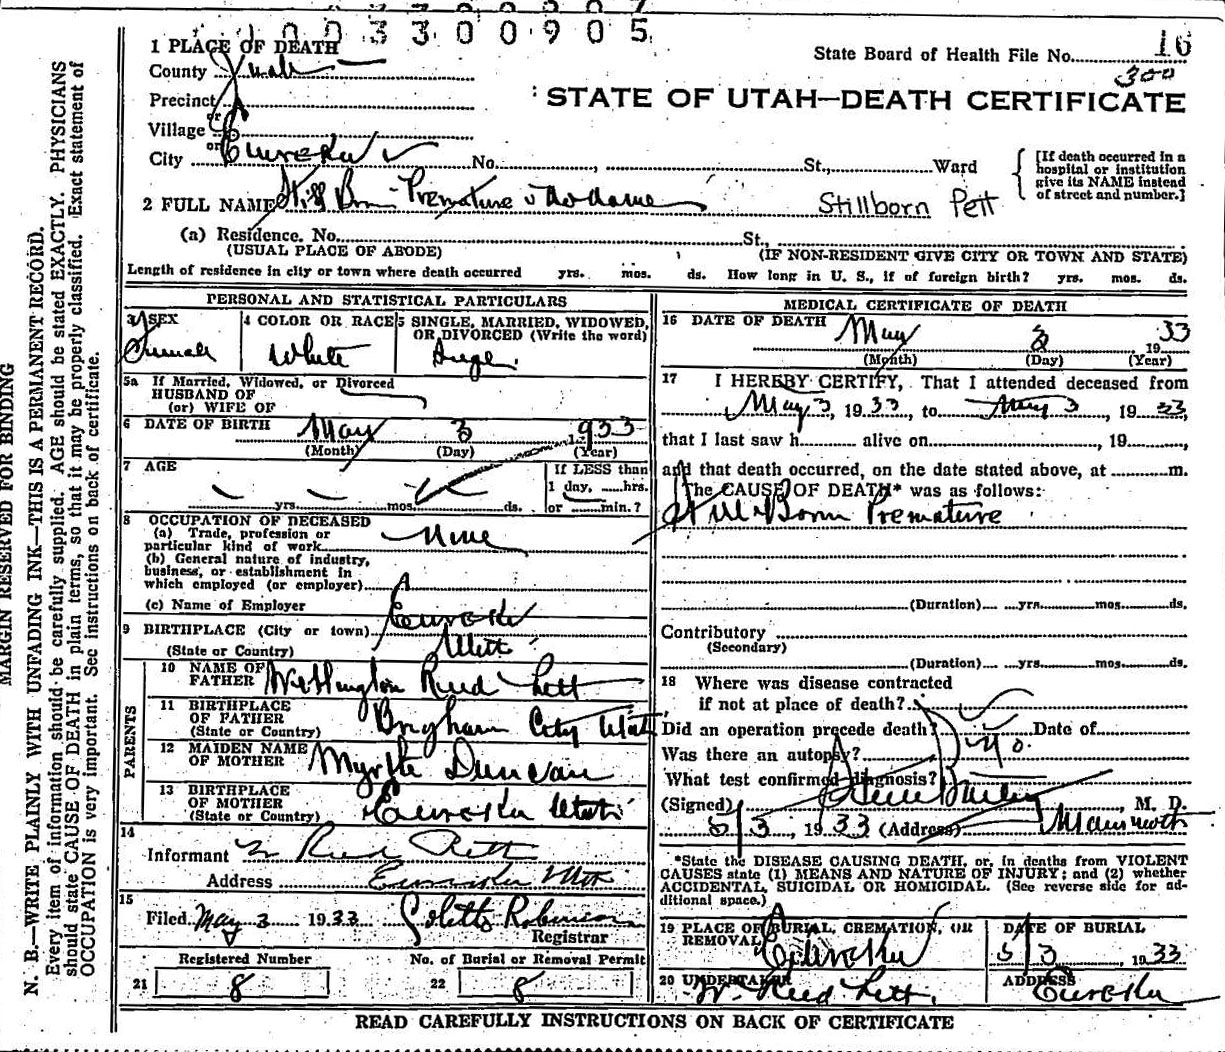 0 0 3 3 0 0 9 0 5
1 PLACE OF DEATH
State Board of Health File No. 16
300
County Juab
Precinct
STATE OF UTAH—DEATH CERTIFICATE
or
Village
or
City Eureka No. , St., Ward
[If death occurred in a hospital or institution give its NAME instead of street and number.]
2 FULL NAME Still Born Premature No Name Stillborn Pett
(a) Residence. No. St.,
(USUAL PLACE OF ABODE) (IF NON-RESIDENT GIVE CITY OR TOWN AND STATE)
Length of residence in city or town where death occurred yrs. mos. ds. How long in U. S., if of foreign birth? yrs. mos. ds.
PERSONAL AND STATISTICAL PARTICULARS
3 SEX
Female
4 COLOR OR RACE
White
5 SINGLE, MARRIED, WIDOWED,
OR DIVORCED (Write the word)
Single.
5a If Married, Widowed, or Divorced
HUSBAND OF
(or) WIFE OF
6 DATE OF BIRTH May 3 1933
(Month) (Day) (Year)
7 AGE
If LESS than
1 day, hrs.
yrs. mos. ds. or min.?
8 OCCUPATION OF DECEASED
(a) Trade, profession or
particular kind of work None
(b) General nature of industry,
business, or establishment in
which employed (or employer)
(c) Name of Employer
9 BIRTHPLACE (City or town) Eureka
(State or Country) Utah
PARENTS
10 NAME OF
FATHER Reed Pett
11 BIRTHPLACE
OF FATHER
(State or Country) Brigham City Utah
12 MAIDEN NAME
OF MOTHER Myrtle Duncan
13 BIRTHPLACE
OF MOTHER
(State or Country) Eureka Utah
14
Informant W Reed Pett
Address Eureka Utah
15
Filed May 3 1933 Robinson
Registrar
Registered Number No. of Burial or Removal Permit
21 8 22 8
MEDICAL CERTIFICATE OF DEATH
16 DATE OF DEATH May 3 1933
(Month) (Day) (Year)
17 I HEREBY CERTIFY, That I attended deceased from
May 3, 1933, to May 3, 1933
that I last saw h alive on , 19 ,
and that death occurred, on the date stated above, at m.
The CAUSE OF DEATH* was as follows:
Still Born Premature
(Duration) yrs. mos. ds.
Contributory
(Secondary)
(Duration) yrs. mos. ds.
18 Where was disease contracted
if not at place of death?
Did an operation precede death? Date of
Was there an autopsy? No.
What test confirmed diagnosis?
(Signed) Steele Bailey, M. D.
5/3, 1933 (Address) Mammoth
*State the DISEASE CAUSING DEATH, or, in deaths from VIOLENT
CAUSES state (1) MEANS AND NATURE OF INJURY; and (2) whether
ACCIDENTAL, SUICIDAL OR HOMICIDAL. (See reverse side for ad-
ditional space.)
19 PLACE OF BURIAL, CREMATION, OR
REMOVAL Eureka
DATE OF BURIAL
5/3, 1933
20 UNDERTAKER
W. Reed Pett.
ADDRESS
Eureka
READ CAREFULLY INSTRUCTIONS ON BACK OF CERTIFICATE
MARGIN RESERVED FOR BINDING
N. B.—WRITE PLAINLY WITH UNFADING INK—THIS IS A PERMANENT RECORD.
Every item of information should be carefully supplied. AGE should be stated EXACTLY. PHYSICIANS
should state CAUSE OF DEATH in plain terms, so that it may be properly classified. Exact statement of
OCCUPATION is very important. See instructions on back of certificate.